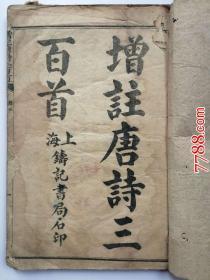 增註唐詩三
百首
上海鑄記書局石印
7788.com